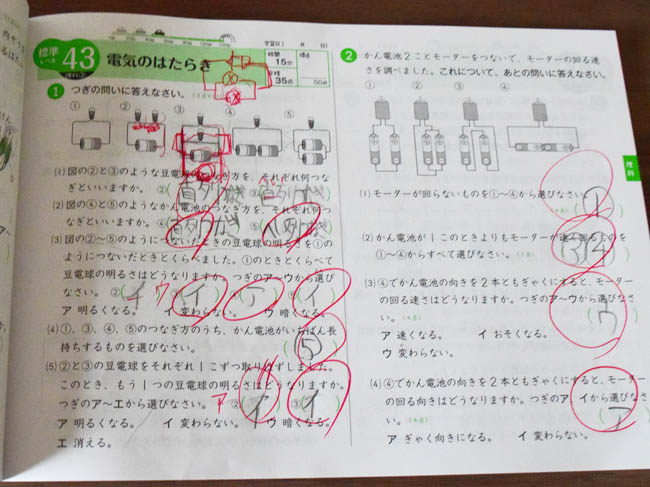 標準レベル 43 電気のはたらき
理科③
学習日 月 日
時間 15分
合格 35点
得点 50点
1 つぎの問いに答えなさい。
① ② ③ ④ ⑤
(1) 図の②と③のような豆電球のつなぎ方を、それぞれ何つな
ぎといいますか。
(2) 図の④と⑤のようなかん電池のつなぎ方を、それぞれ何つ
なぎといいますか。
(3) 図の②〜⑤のようにつないだときの豆電球の明るさを①の
ようにつないだときとくらべました。①のときとくらべて
豆電球の明るさはどうなりますか。つぎのア〜ウから選びな
さい。
ア 明るくなる。 イ 変わらない。 ウ 暗くなる。
(4) ①、③、④、⑤のつなぎ方のうち、かん電池がいちばん長
持ちするものを選びなさい。 (⑤)
(5) ②と③の豆電球をそれぞれ1こずつ取りはずしました。
このとき、もう1つの豆電球の明るさはどうなりますか。
つぎのア〜エから選びなさい。 ③(イ)
ア 明るくなる。 イ 変わらない。 ウ 暗くなる。
エ 消える。
2 かん電池2ことモーターをつないで、モーターの回る速
さを調べました。これについて、あとの問いに答えなさい。
① ② ③ ④
(1) モーターが回らないものを①〜④から選びなさい。
(①)
(2) かん電池が1このときよりもモーターが速く回るものを
①〜④からすべて選びなさい。
(3) ④でかん電池の向きを2本ともぎゃくにすると、モーター
の回る速さはどうなりますか。つぎのア〜ウから選びなさ
い。 (ウ)
ア 速くなる。 イ おそくなる。
ウ 変わらない。
(4) ④でかん電池の向きを2本ともぎゃくにすると、モーター
の回る向きはどうなりますか。つぎのア、イから選びなさ
い。 (ア)
ア ぎゃく向きになる。 イ 変わらない。
理科